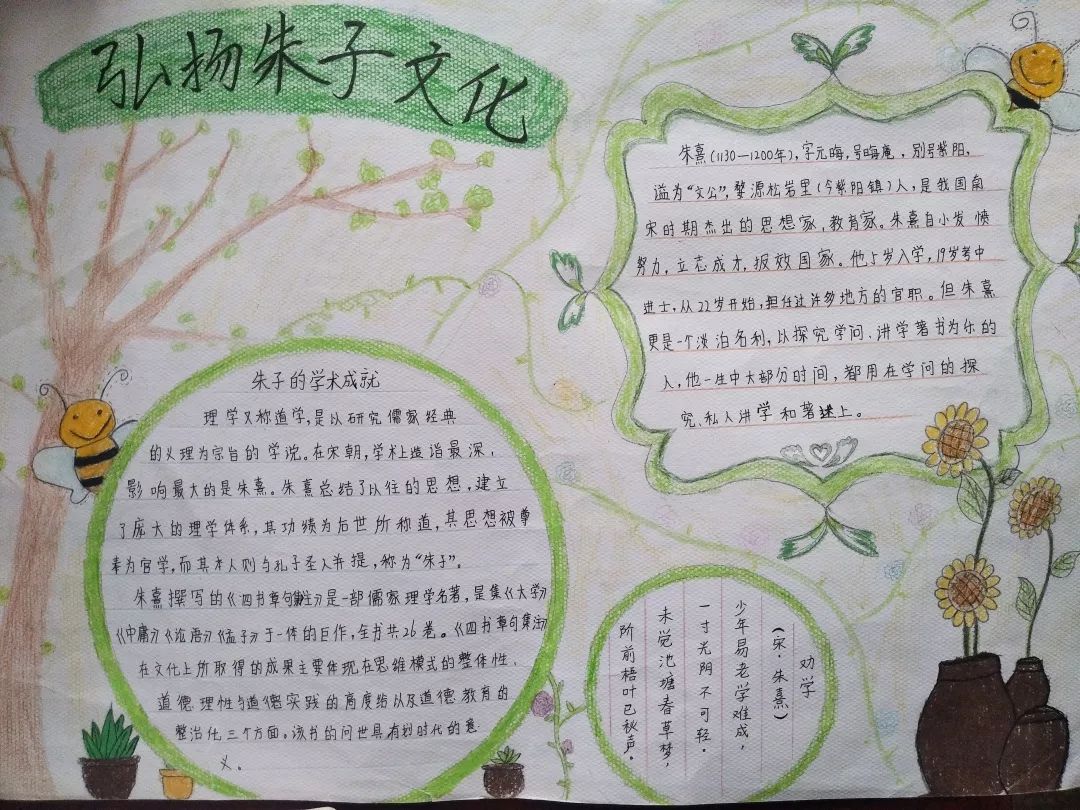 弘扬朱子文化
朱熹(1130—1200年),字元晦,号晦庵,别号紫阳,
谥为“文公”,婺源松岩里(今紫阳镇)人,是我国南
宋时期杰出的思想家,教育家。朱熹自小发愤
努力,立志成才,报效国家。他5岁入学,19岁考中
进士,从22岁开始,担任过许多地方的官职。但朱熹
更是一个淡泊名利,以探究学问、讲学著书为乐的
人,他一生中大部分时间,都用在学问的探
究、私人讲学和著述上。
朱子的学术成就
理学又称道学,是以研究儒家经典
的义理为宗旨的学说。在宋朝,学术上造诣最深,
影响最大的是朱熹。朱熹总结了以往的思想,建立
了庞大的理学体系,其功绩为后世所称道,其思想被尊
奉为官学,而其本人则与孔子圣人并提,称为“朱子”。
朱熹撰写的《四书章句集注》是一部儒家理学名著,是集《大学》
《中庸》《论语》《孟子》于一体的巨作,全书共26卷。《四书章句集注》
在文化上所取得的成果主要体现在思维模式的整体性、
道德理性与道德实践的高度结以及道德教育的
整治化三个方面。该书的问世具有划时代的意
义。
劝学
(宋·朱熹)
少年易老学难成,
一寸光阴不可轻。
未觉池塘春草梦,
阶前梧叶已秋声。